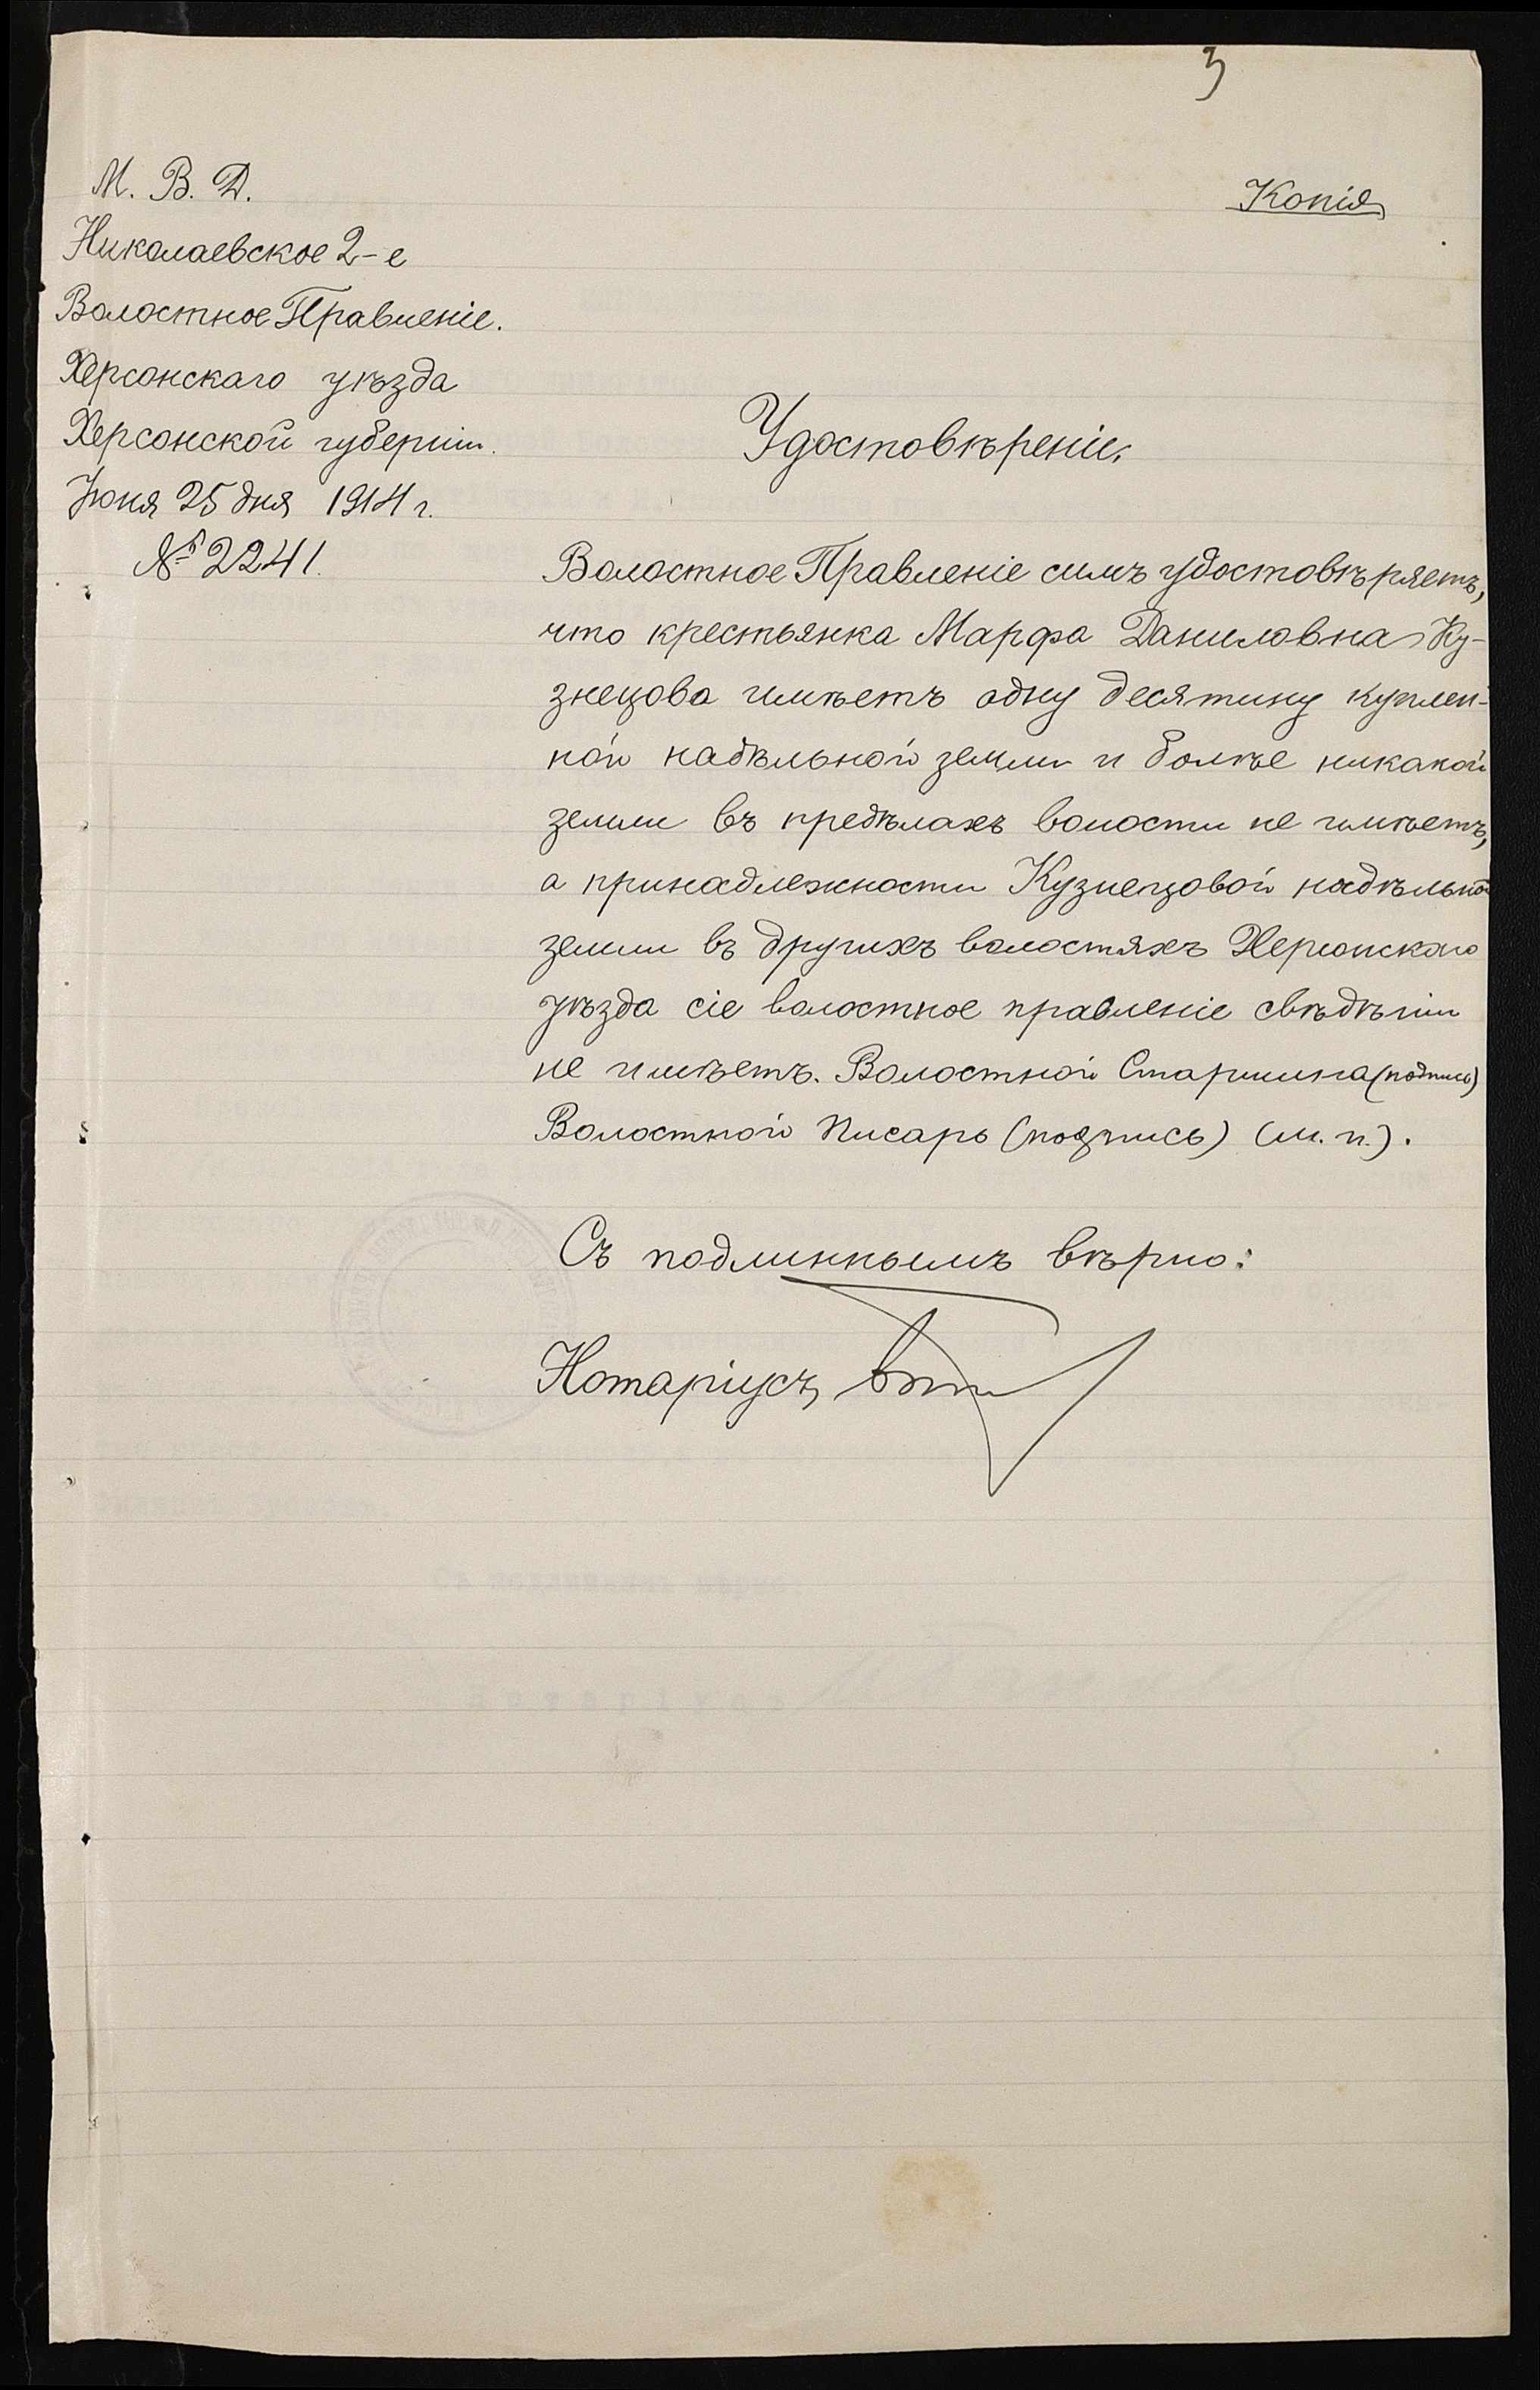 3
М. В. Д.
Копія
Николаевское 2-е
Волостное Правленіе.
Херсонскаго уѣзда
Херсонской губерніи.
Іюня 25 дня 1914 г.
№ 2241.
Удостовѣреніе.
Волостное Правленіе симъ удостовѣряетъ,
что крестьянка Марфа Даниловна Ку-
знецова имѣетъ одну десятину куплен-
ной надѣльной земли и болѣе никакой
земли въ предѣлахъ волости не имѣетъ,
а принадлежности Кузнецовой надѣльной
земли въ другихъ волостяхъ Херсонскаго
уѣзда сіе волостное правленіе свѣдѣній
не имѣетъ. Волостной Старшина (подпись)
Волостной Писарь (подпись) (м. п.).
Съ подлиннымъ вѣрно:
Нотаріусъ